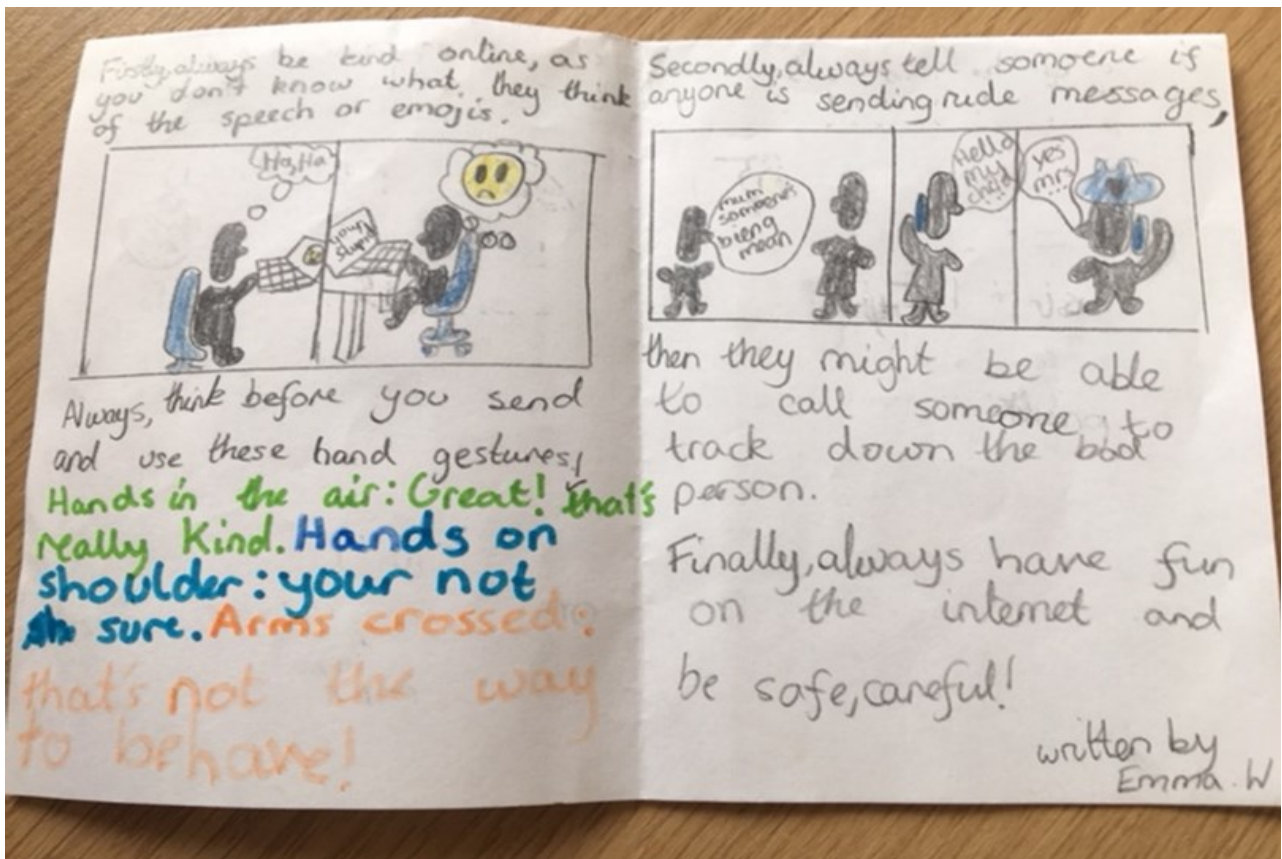 Firstly, always be kind online, as
you don't know what they think
of the speech or emojis.
Ha, Ha
your
stupid
Always, think before you send
and use these hand gestures!
Hands in the air: Great! that's
really Kind. Hands on
shoulder: your not
sure. Arms crossed:
that's not the way
to behave!
Secondly, always tell somoene if
anyone is sending rude messages,
mum
someone's
bieng
mean
Hello
my
child
...
yes
mrs
...
then they might be able
to call someone to
track down the bad
person.
Finally, always have fun
on the internet and
be safe, careful!
written by
Emma. W